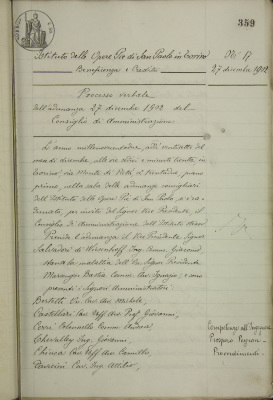 359
Istituto delle Opere Pie di San Paolo in Torino
Beneficenza e Credito
N° 17
27 dicembre 1902
Processo verbale
dell'adunanza 27 dicembre 1902 del
Consiglio di Amministrazione
L'anno millenovecentodue, addì ventisette del
mese di dicembre, alle ore dieci e minuti trenta, in
Torino, via Monte di Pietà, N. trentadue, piano
primo, nella sala delle adunanze consigliari
dell'Istituto delle Opere Pie di San Paolo, si è ra-
dunato, per invito del Signor Vice Presidente, il
Consiglio di Amministrazione dell'Istituto stesso
Presiede l'adunanza il Vice Presidente Signor
Salvadori di Wiesenhoff Ing. Comm. Giacomo,
stante la malattia dell' Signor Presidente
Marengo Bastia Comm. Avv. Ignazio, e sono
presenti i Signori Amministratori:
Bertetti Cav. Avv. Michele,
Castellari Cav. Uff. Avv. Prof. Giovanni,
Cerri Colonnello Comm. Andrea,
Chevalley Ing. Giovanni,
Chiesa Cav. Uff. Avv. Camillo,
Cav. Ing. Attilio,
Competenze all'Ingegnere
Prospero Peyron -
Provvedimenti -